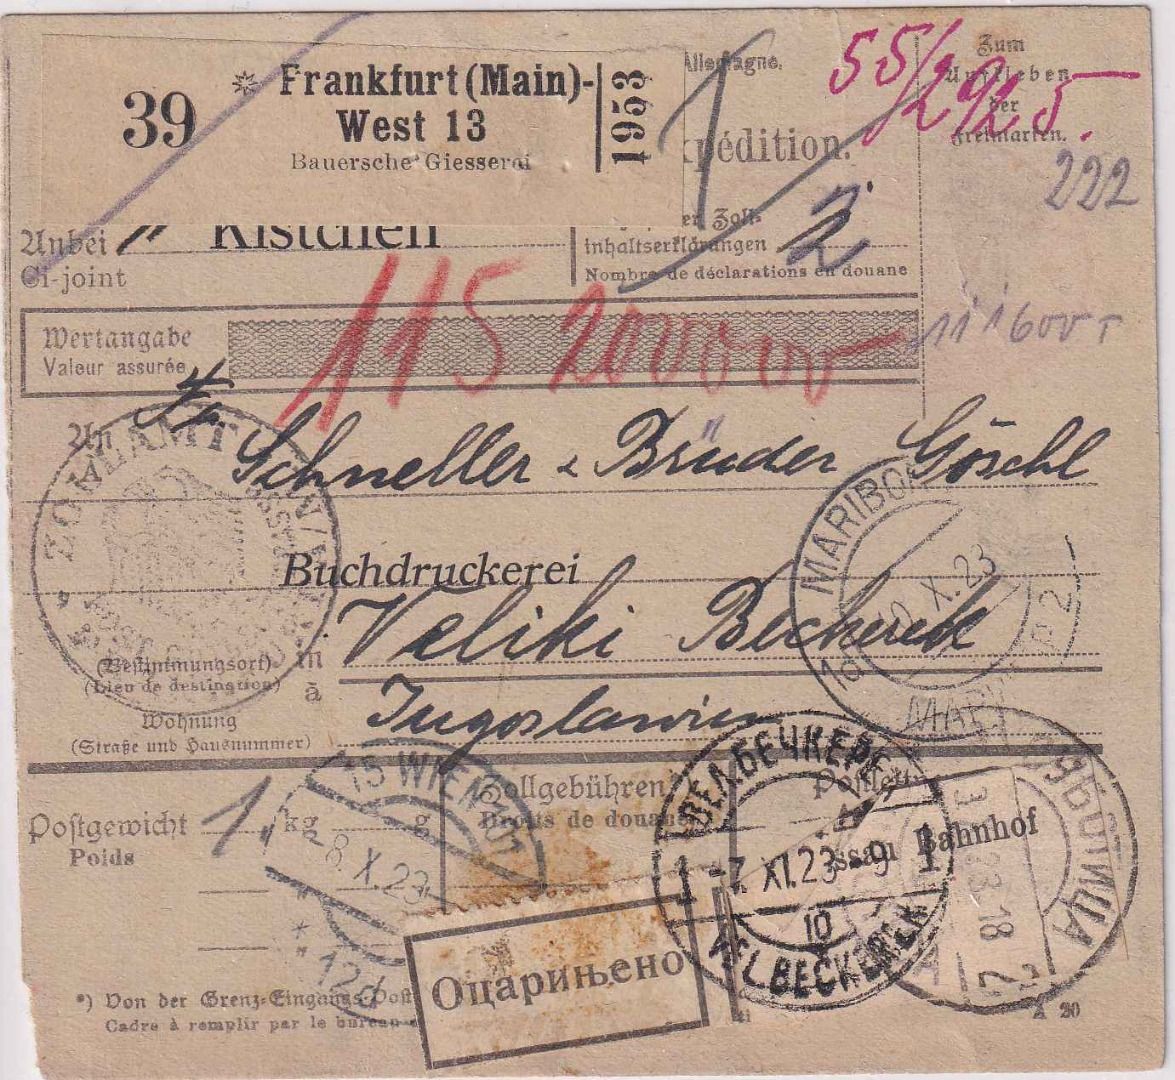 39
* Frankfurt (Main)-
West 13
Bauersche Giesserei
1953
Allemagne.
pédition.
55/2925.
Zum
Aufkleben
der
Freimarken.
222
Anbei
Ci-joint
1
Kistchen
er Zoll-
inhaltserklärungen
Nombre de déclarations en douane
2
Wertangabe
Valeur assurée
115 2000000
An
Schneller & Brüder Göschl
Buchdruckerei
(Bestimmungsort)
(Lieu de destination)
in
à
Veliki Beckerek
Jugoslawien
Wohnung
(Straße und Hausnummer)
ZOLLAMT
MARIBOR
X.23
1d
Postgewicht
Poids
1.
kg
g
Zollgebühren
Droits de douane
15 WIEN 101
-8.X.23
* 12d
ВЕЛ.БЕЧКЕРЕ
1 -7. XI.23-9 1
10
VEL.BEČKEREK
ssau Bahnhof
Оцарињено
*) Von der Grenz-Eingangs-Post
Cadre à remplir par le bureau
A 20